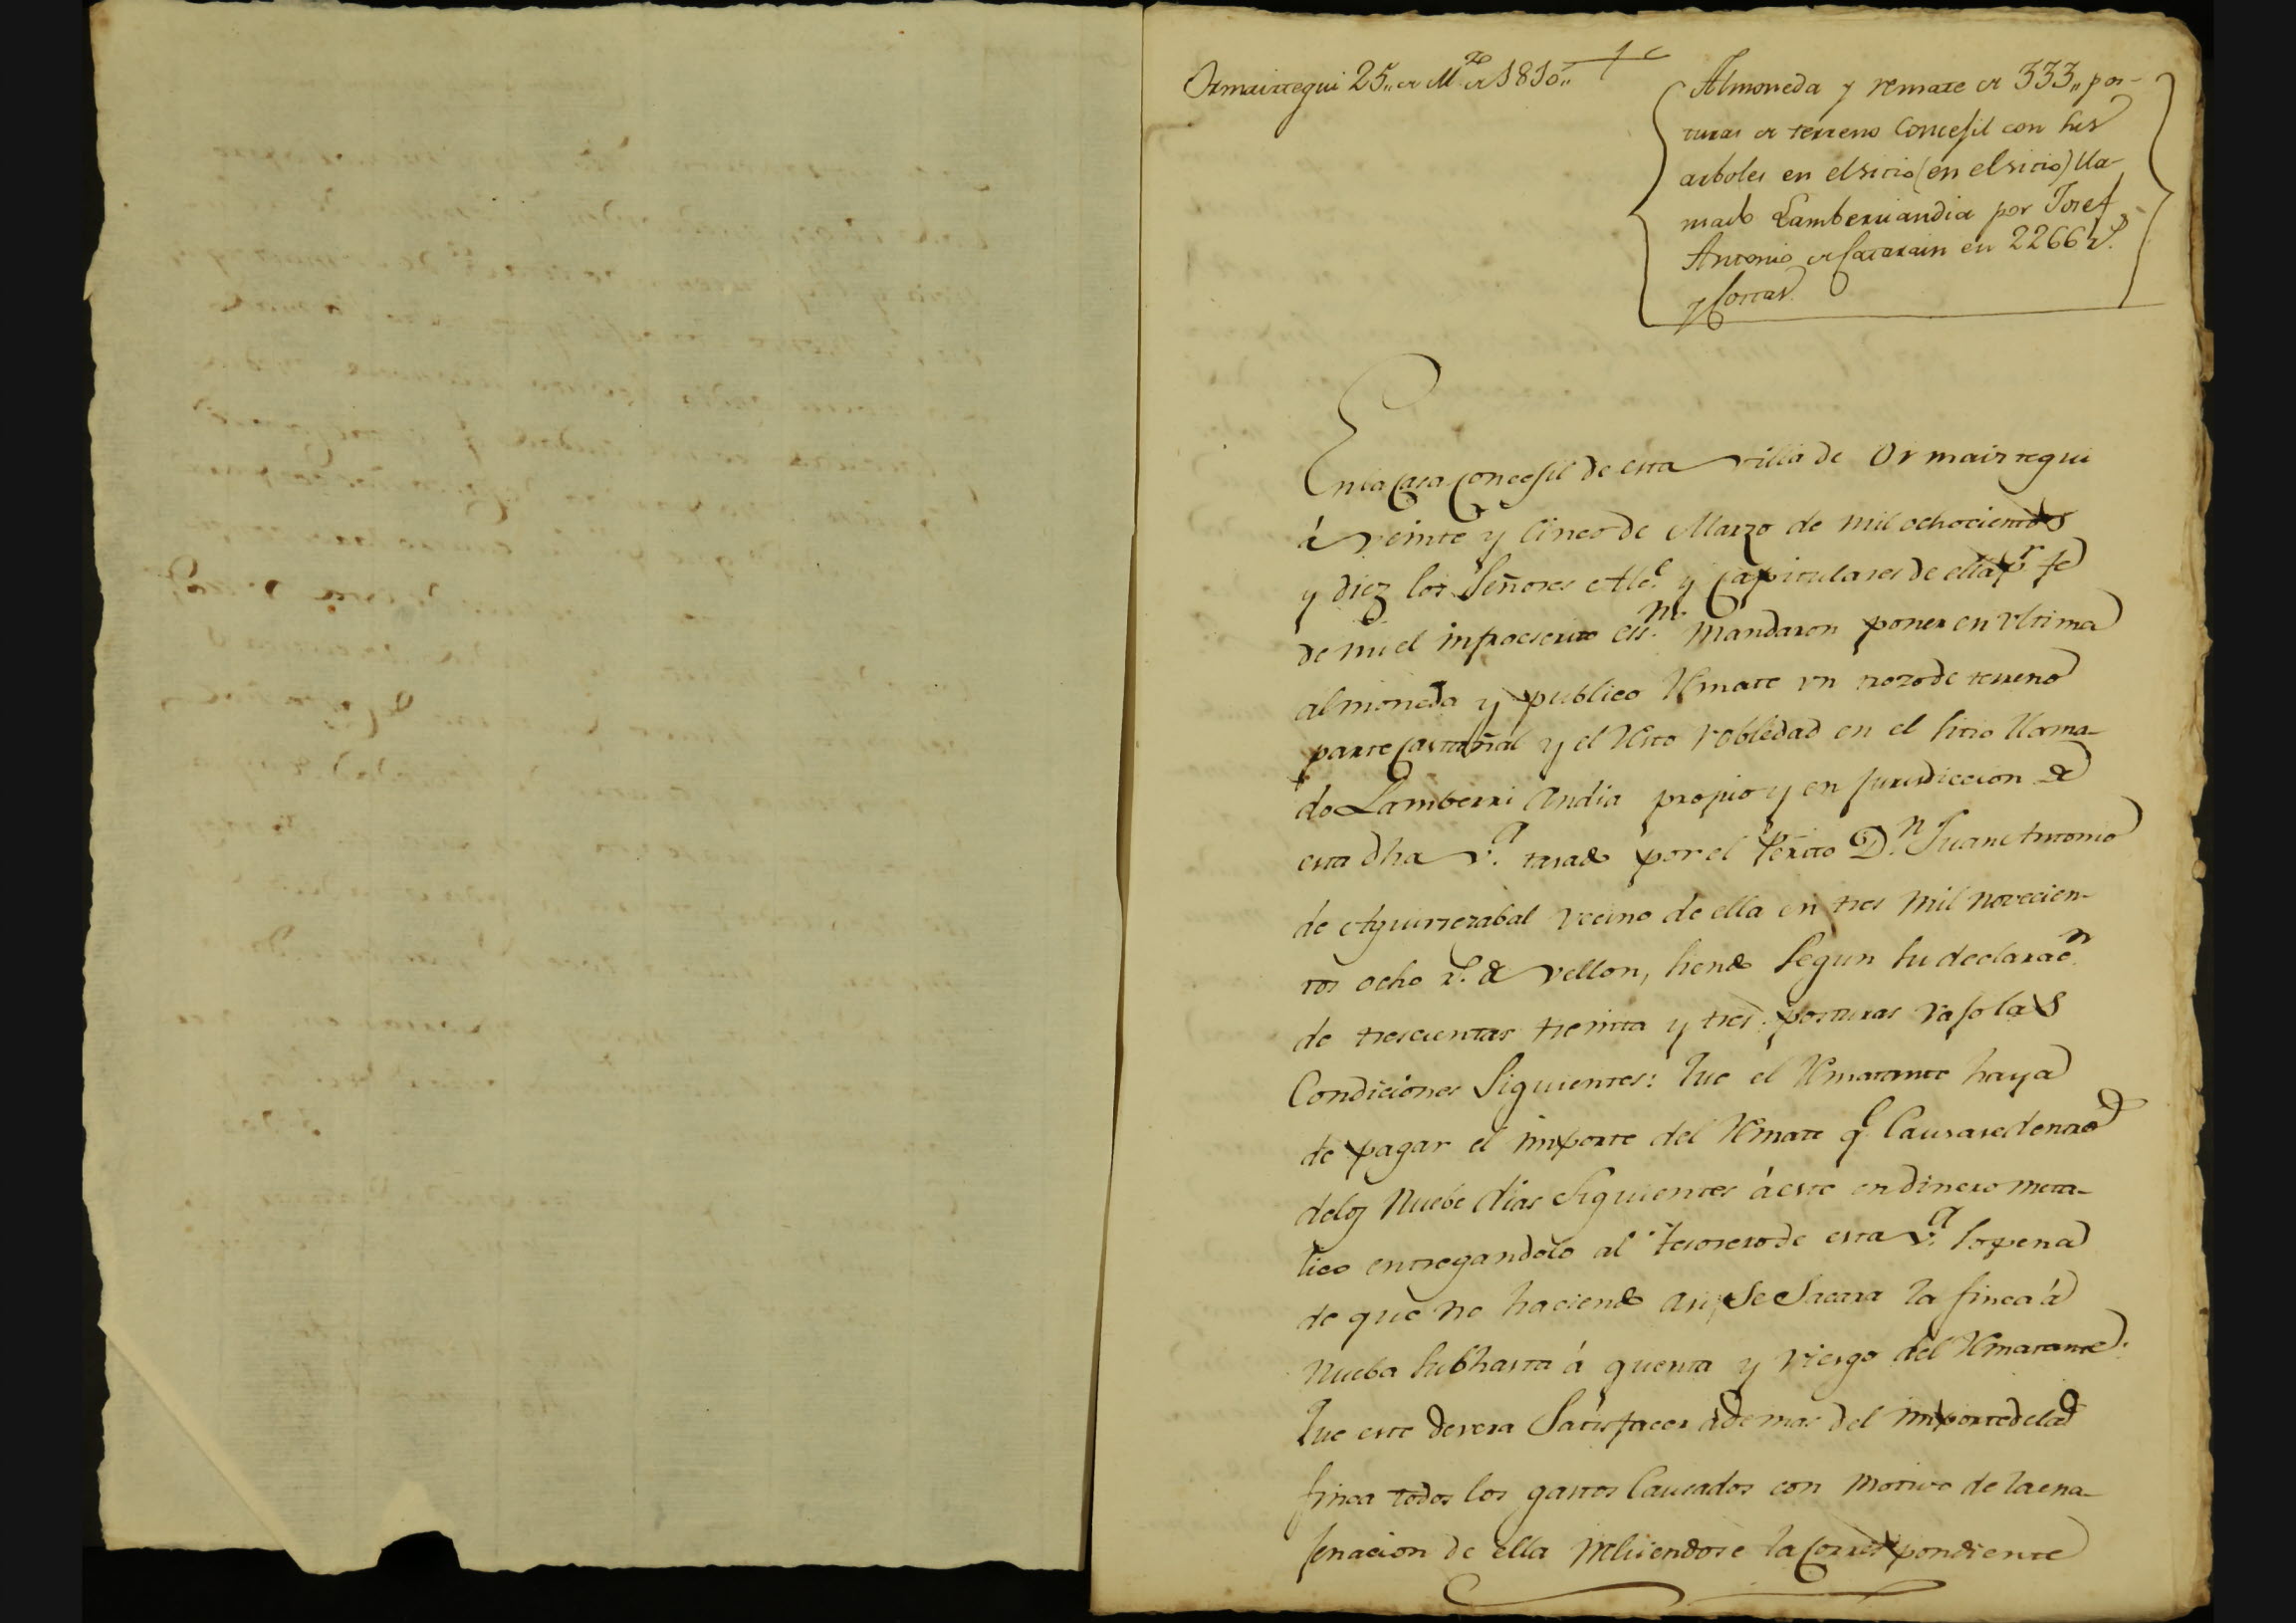 Ormaiztegui 25,, de M.zo de 1810,,
Almoneda y remate de 333,, pos-
turas de terreno Concejil con sus
arboles en el sitio (en el sitio) lla-
mado Lamberriandia por Josef
Antonio de Sarasain en 2266 r.s
y Costas
En la Casa Concejil de esta villa de Ormaiztegui
á veinte y Cinco de Marzo de mil ochocientos
y diez los Señores Alc.e y Capitulares de ella p.r fe
de mi el infraescrito ess.no mandaron poner en ultima
almoneda y publico Remate un trozo de terreno
parte Castañal y el Resto Robledad en el sitio llama-
do Lamberri Andia propio y en Jurisdiccion de
esta dha v.a tasado por el Perito D.n Juan Antonio
de Aguirrezabal vecino de ella en tres mil novecien-
tos ocho r.s de vellon, siendo Segun su declarac.n
de trescientas treinta y tres posturas vajo las
Condiciones Siguientes: Que el Rematante haya
de pagar el importe del Remate q.e Causare dentro
de los Nuebe dias Siguientes á este en dinero meta-
lico entregandolo al tesorero de esta v.a so pena
de que no haciendo asi, se Sacara la finca á
Nueba Subhasta á quenta y riesgo del Rematante.
Que este devera Satisfacer ademas del importe de la
finca todos los gastos Causados con motivo de la ena-
jenacion de ella incluiendose la Correspondiente